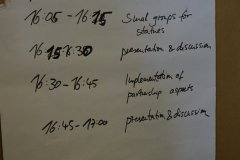 16:05 - 16:15 Small groups for
statues
16:15 16:30 presentation & discussion
16:30 - 16:45 Implementation of
partnership aspects
16:45 - 17:00 presentation & discussion